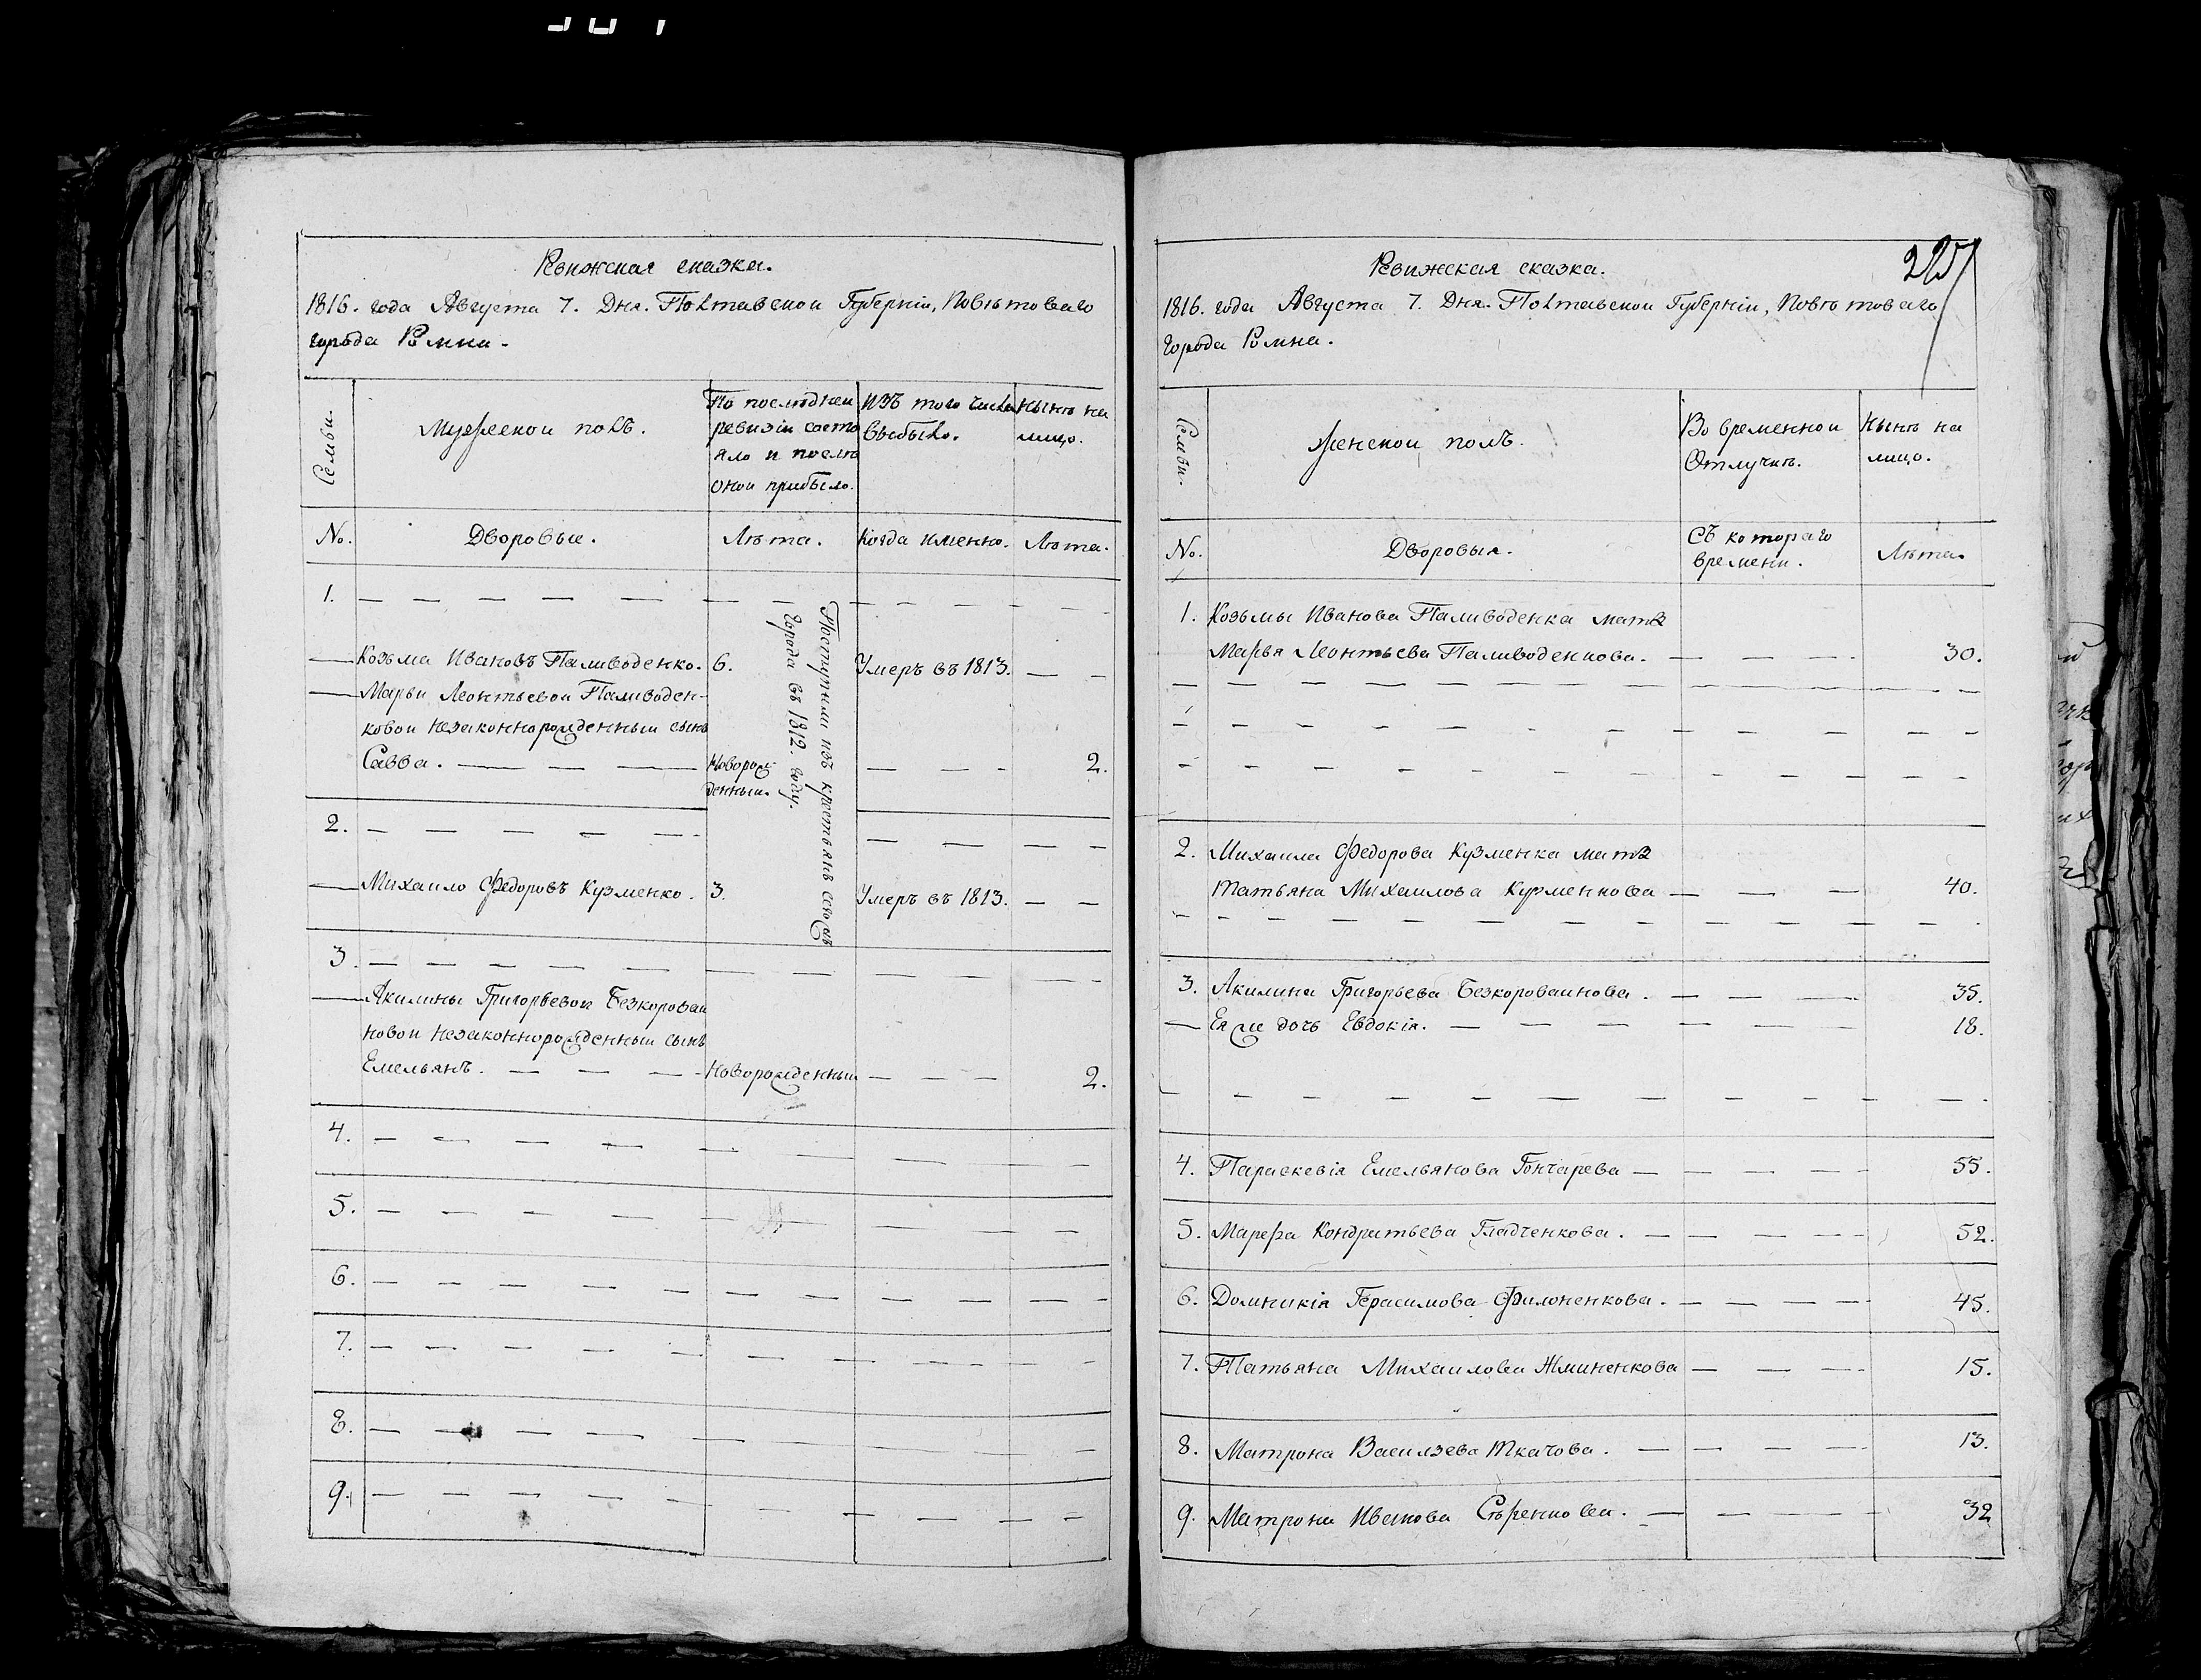 Ревижская сказка.
1816. года Августа 7. Дня. Полтавской Губерніи, Повѣтоваго
города Ромна.
Семьи.
Мужескои полъ.
По послѣднеи
ревизіи состо
яло и послѣ
онои прибыло.
Изъ того числа
выбыло.
Нынѣ на
лицо.
No.
Дворовые.
Лѣта.
Когда именно.
Лѣта.
1.
Поступили изъ крестьянъ
города въ 1812. году.
Козьма Ивановъ Паливоденко. 6. Умеръ въ 1813.
Марьи Леонтьевои Паливоден-
ковои незаконнорожденныи сынъ
Савва. Новорож-
денныи. 2.
2.
Михаило Федоровъ Кузменко. 3. Умеръ въ 1813.
3.
Акилины Григорьевои Безкороваи
новои незаконнорожденныи сынъ
Емельянъ. Новорожденныи 2.
4.
5.
6.
7.
8.
9.
225
Ревижская сказка.
1816. года Августа 7. Дня. Полтавской Губерніи, Повѣтоваго
города Ромна.
Семьи.
Женскои полъ.
Во временнои
Отлучкѣ.
Нынѣ на
лицо.
No.
Дворовыя.
Съ котораго
времени.
Лѣта.
1. Козьмы Иванова Паливоденка мать
Марья Леонтьева Паливоденкова. 30.
2. Михаила Федорова Кузменка мать
Татьяна Михаилова Кузменкова 40.
3. Акилина Григорьева Безкороваинова. 35.
Ея же дочь Евдокія. 18.
4. Параскевія Емельянова Гончарева 55.
5. Марефа Кондратьева Гладченкова. 52.
6. Домникія Герасимова Филоненкова. 45.
7. Татьяна Михаилова Жминенкова 15.
8. Матрона Васильева Ткачова. 13.
9. Матрона Иванова Сѣренкова. 32